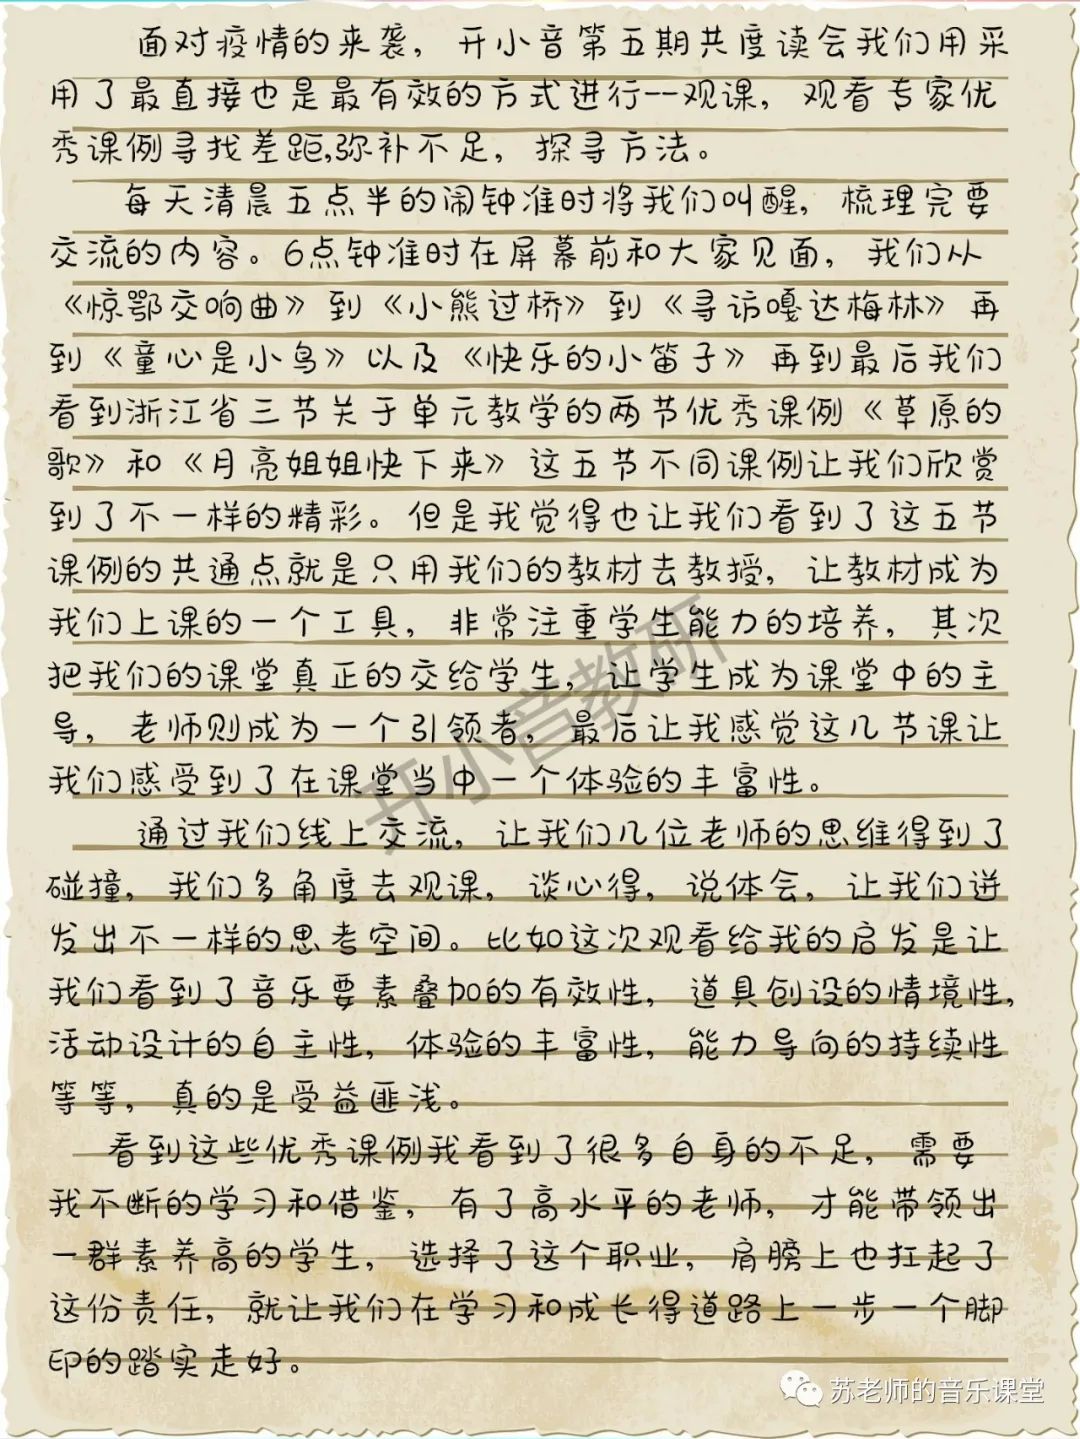 面对疫情的来袭，开小音第五期共度读会我们用采
用了最直接也是最有效的方式进行--观课，观看专家优
秀课例寻找差距,弥补不足，探寻方法。
每天清晨五点半的闹钟准时将我们叫醒，梳理完要
交流的内容。6点钟准时在屏幕前和大家见面，我们从
《惊鄂交响曲》到《小熊过桥》到《寻访嘎达梅林》再
到《童心是小鸟》以及《快乐的小笛子》再到最后我们
看到浙江省三节关于单元教学的两节优秀课例《草原的
歌》和《月亮姐姐快下来》这五节不同课例让我们欣赏
到了不一样的精彩。但是我觉得也让我们看到了这五节
课例的共通点就是只用我们的教材去教授，让教材成为
我们上课的一个工具，非常注重学生能力的培养，其次
把我们的课堂真正的交给学生，让学生成为课堂中的主
导，老师则成为一个引领者，最后让我感觉这几节课让
我们感受到了在课堂当中一个体验的丰富性。
通过我们线上交流，让我们几位老师的思维得到了
碰撞，我们多角度去观课，谈心得，说体会，让我们迸
发出不一样的思考空间。比如这次观看给我的启发是让
我们看到了音乐要素叠加的有效性，道具创设的情境性，
活动设计的自主性，体验的丰富性，能力导向的持续性
等等，真的是受益匪浅。
看到这些优秀课例我看到了很多自身的不足，需要
我不断的学习和借鉴，有了高水平的老师，才能带领出
一群素养高的学生，选择了这个职业，肩膀上也扛起了
这份责任，就让我们在学习和成长得道路上一步一个脚
印的踏实走好。
开小音教研
苏老师的音乐课堂